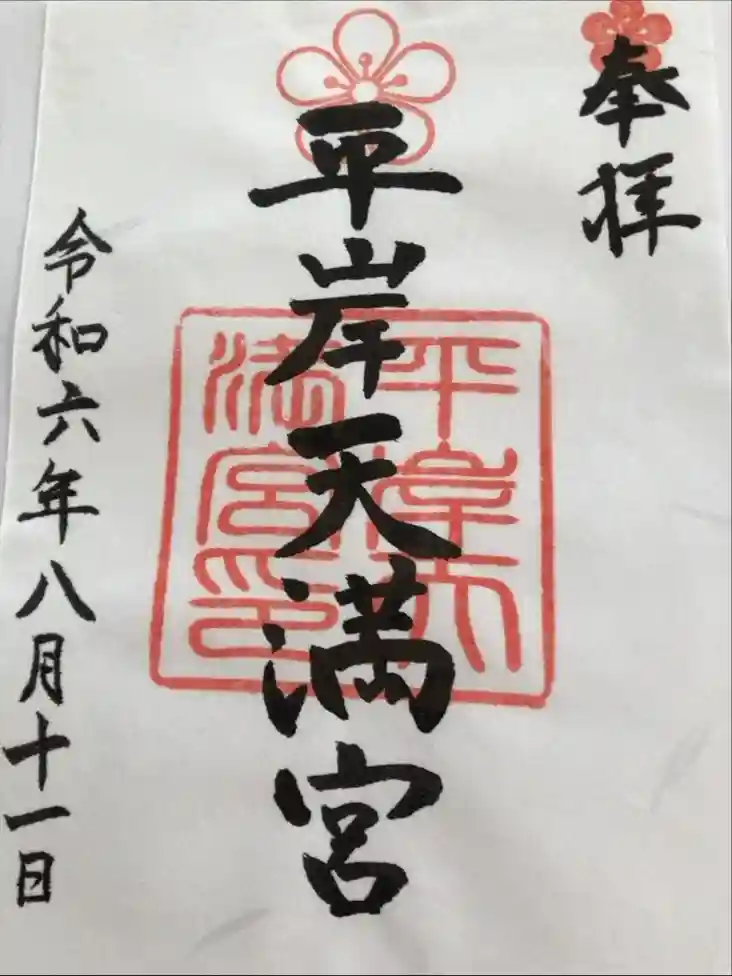 奉拝
平岸天満宮
平岸天
満宮印
令和六年八月十一日